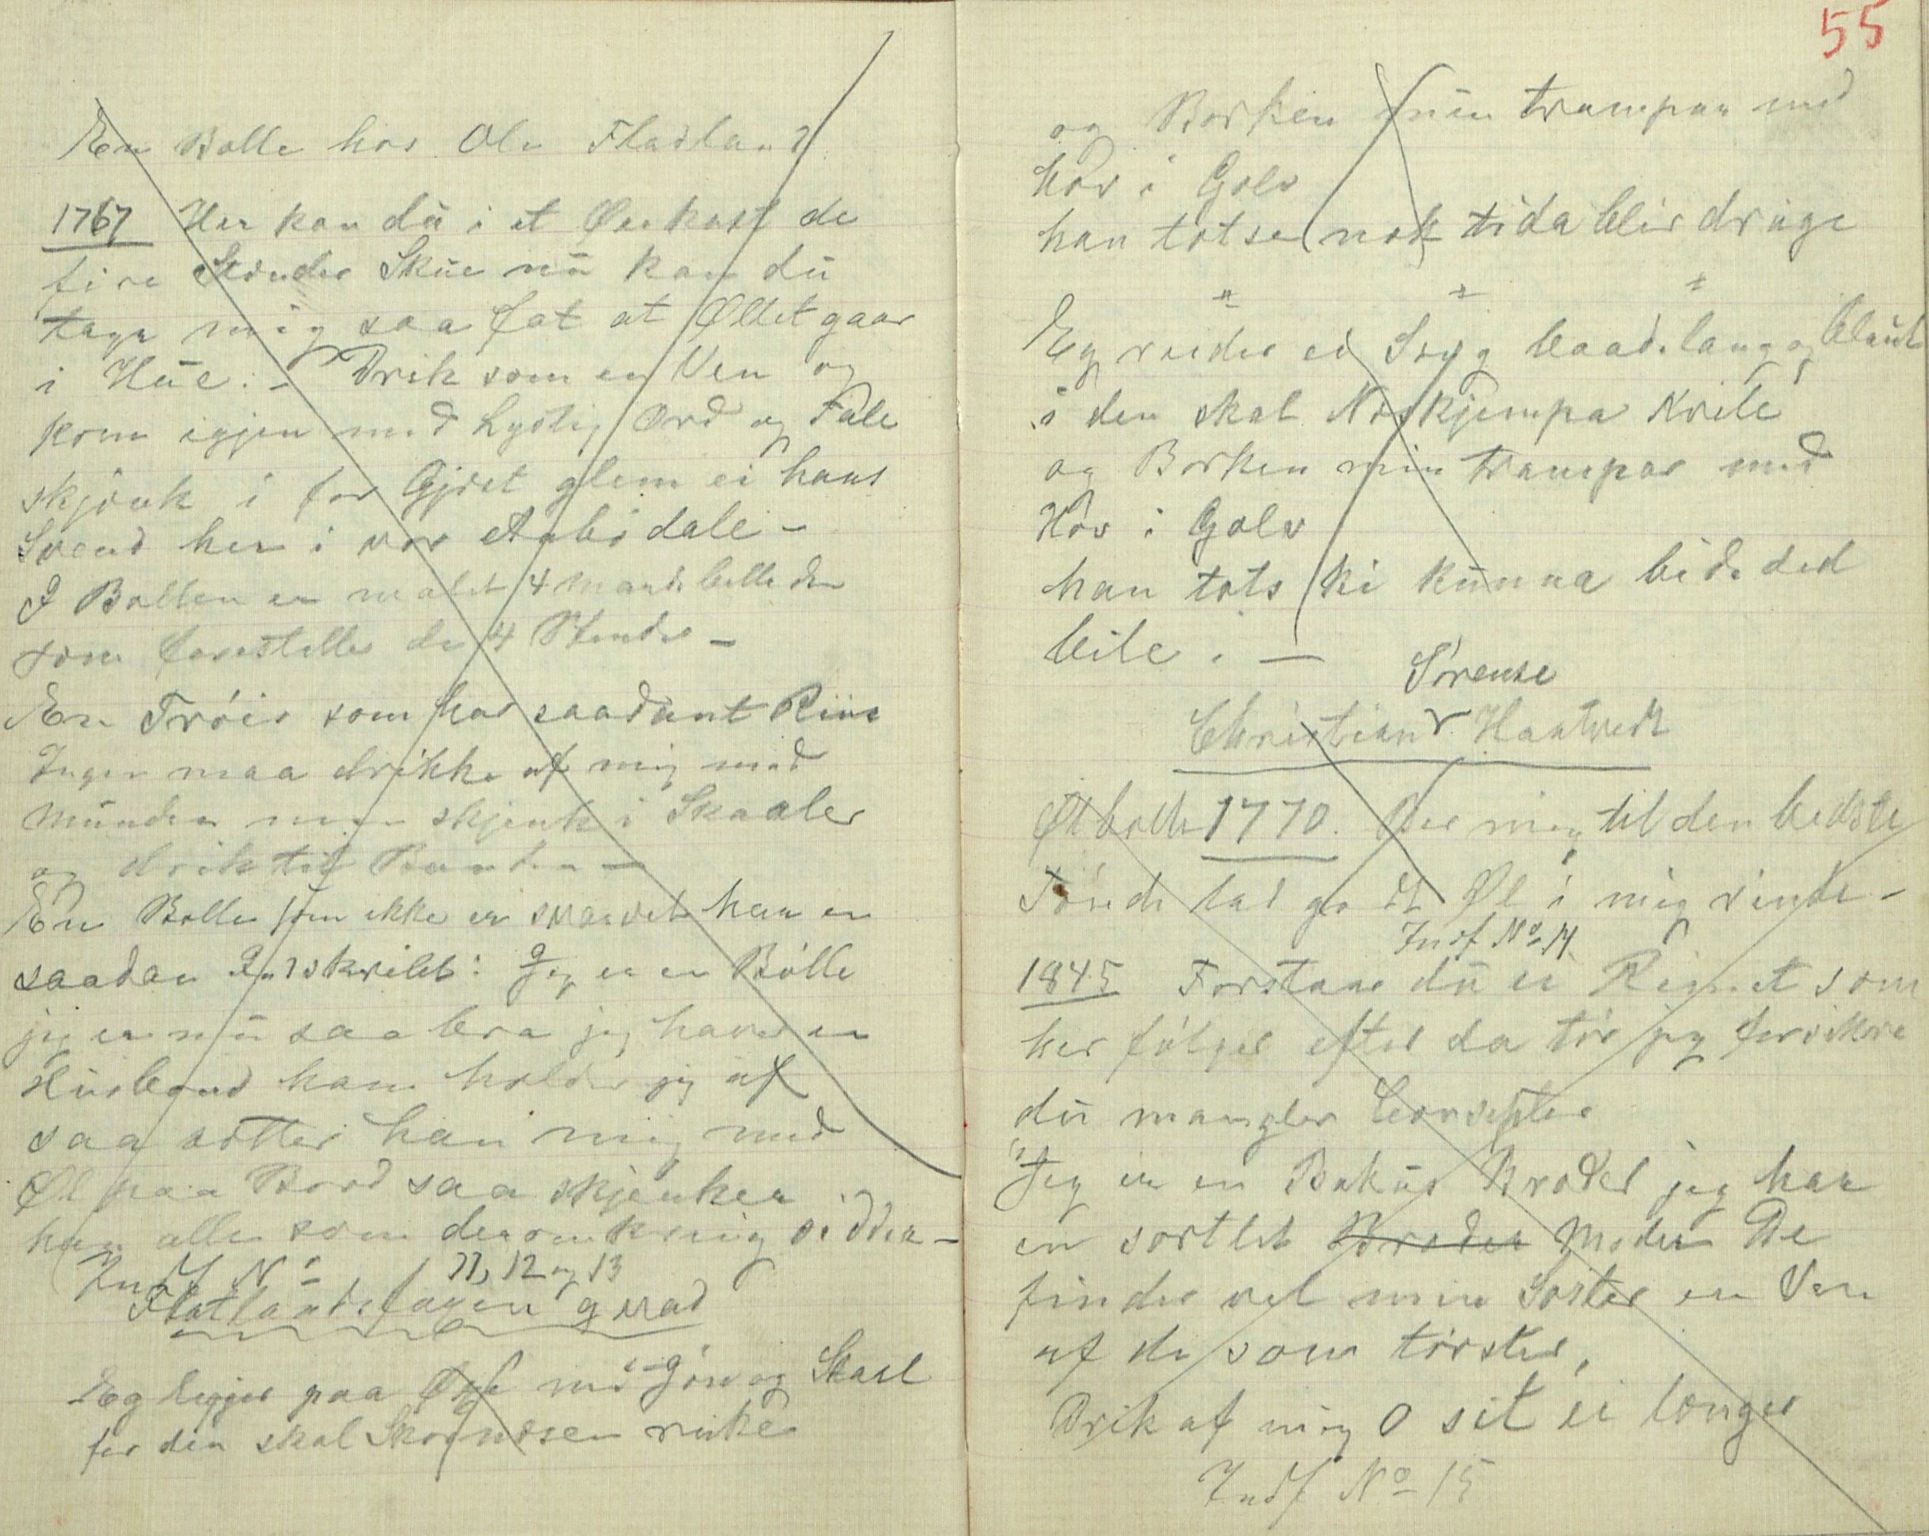 En Bolle hos Ole Fladland
1767 Her kan dū i et Øiekast de
fire Stænder Skūe nū kan dū
tage mig saa fat at Øllet gaar
i Hūe. – Drik som en Ven og
kom igjen med Lystig Ord og Tale
skjænk i for Gjæst glem ei hans
Svend her i vor dale –
I Bollen er malet 4 Mandsbilleder
som forestiller de 4 Stænder –
En Trøis som har saadant Riim
Ingen maa drikke af mig med
Mūnden men skjenk i Skaaler
og drik til Bunden –
En Bolle som ikke er svarvet har en
saadan Indskribt: Jeg er en Bolle
jeg er nū saa bra jeg haver en
Hūsbond ham holder jeg af
saa sætter han mig med
Øl paa Bord saa skjenker
han alle som deromkring sidder –
Indf No 11, 12 og 13
Flatlandsfagen qvad
Eg ligger paa med Jønn og Staal
for den skal ruke
55
og Borken min trampar med
Hov i Golv
han totse nok tida blir drūge
Eg reider ei Seng baade lang og blaut
i den skal Noskjempa kvile
og Borken min trampar med
Hov i Golv
han tots ki kūnna bide ded
bile . –
Sørense
Christian Haatvedt
Ølbolle 1770. Bær mig til den bedste
Fønde lad godt Øl i mig rinde –
Indf No 14
1845 Forstaar dū ei Rimet som
her følger efter da tør jeg forsikre
dū mangler Consepter
"Jeg er en Bakūs Broder jeg har
en sortlet Broder Moder De
finder vel min Søster en Ven
af de som tørster,
Drik af mig O sit ei længer
Indf No 15